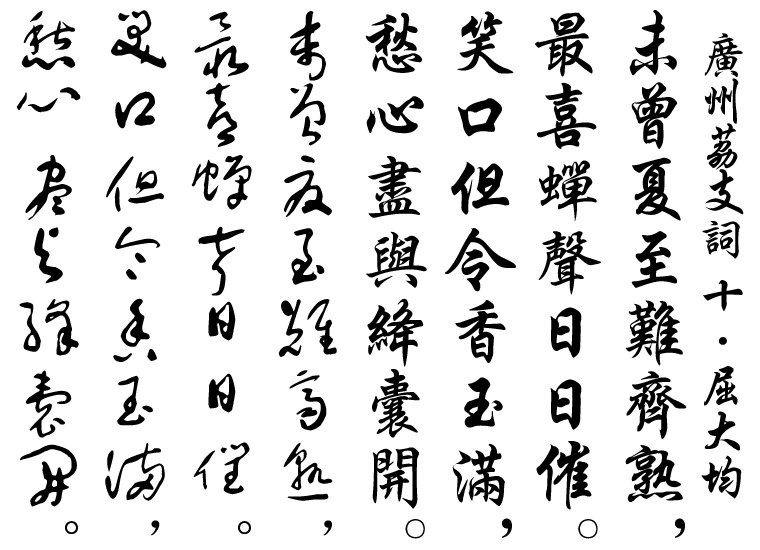 廣州荔支詞 十·屈大均
未曾夏至難齊熟，
最喜蟬聲日日催。
笑口但令香玉滿，
愁心盡與絳囊開。
未曾夏至難齊熟，
最喜蟬聲日日催。
笑口但令香玉滿，
愁心盡與絳囊開。